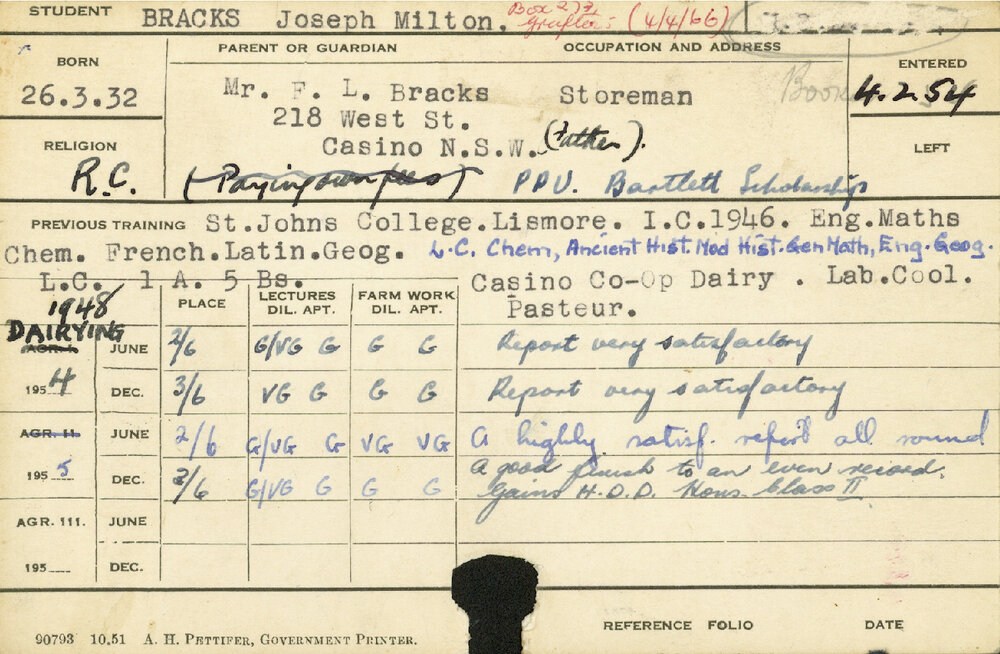 STUDENT BRACKS Joseph Milton. Box 272 Grafton (4/4/66)
BORN PARENT OR GUARDIAN OCCUPATION AND ADDRESS ENTERED
26.3.32 Mr. F. L. Bracks Storeman Book 4.2.54
218 West St.
RELIGION Casino N.S.W. (Father). LEFT
R.C. (Paying own fees) P.P.U. Bartlett Scholarship
PREVIOUS TRAINING St.Johns College.Lismore. I.C.1946. Eng.Maths
Chem. French.Latin.Geog. L.C. Chem, Ancient Hist. Mod Hist. Gen Math, Eng. Geog.
L.C. 1 A. 5 Bs. Casino Co-Op Dairy . Lab.Cool.
1948 PLACE LECTURES FARM WORK Pasteur.
DIL. APT. DIL. APT.
DAIRYING
AGR. I. JUNE 2/6 G/VG G G G Report very satisfactory
1954 DEC. 3/6 VG G G G Report very satisfactory
AGR. II. JUNE 2/6 G/VG G VG VG A highly satisf. report all round
1955 DEC. 2/6 G/VG G G G A good finish to an even record.
Gains H.D.D. Hons. Class II
AGR. III. JUNE
195 DEC.
REFERENCE FOLIO DATE
90793 10.51 A. H. PETTIFER, GOVERNMENT PRINTER.